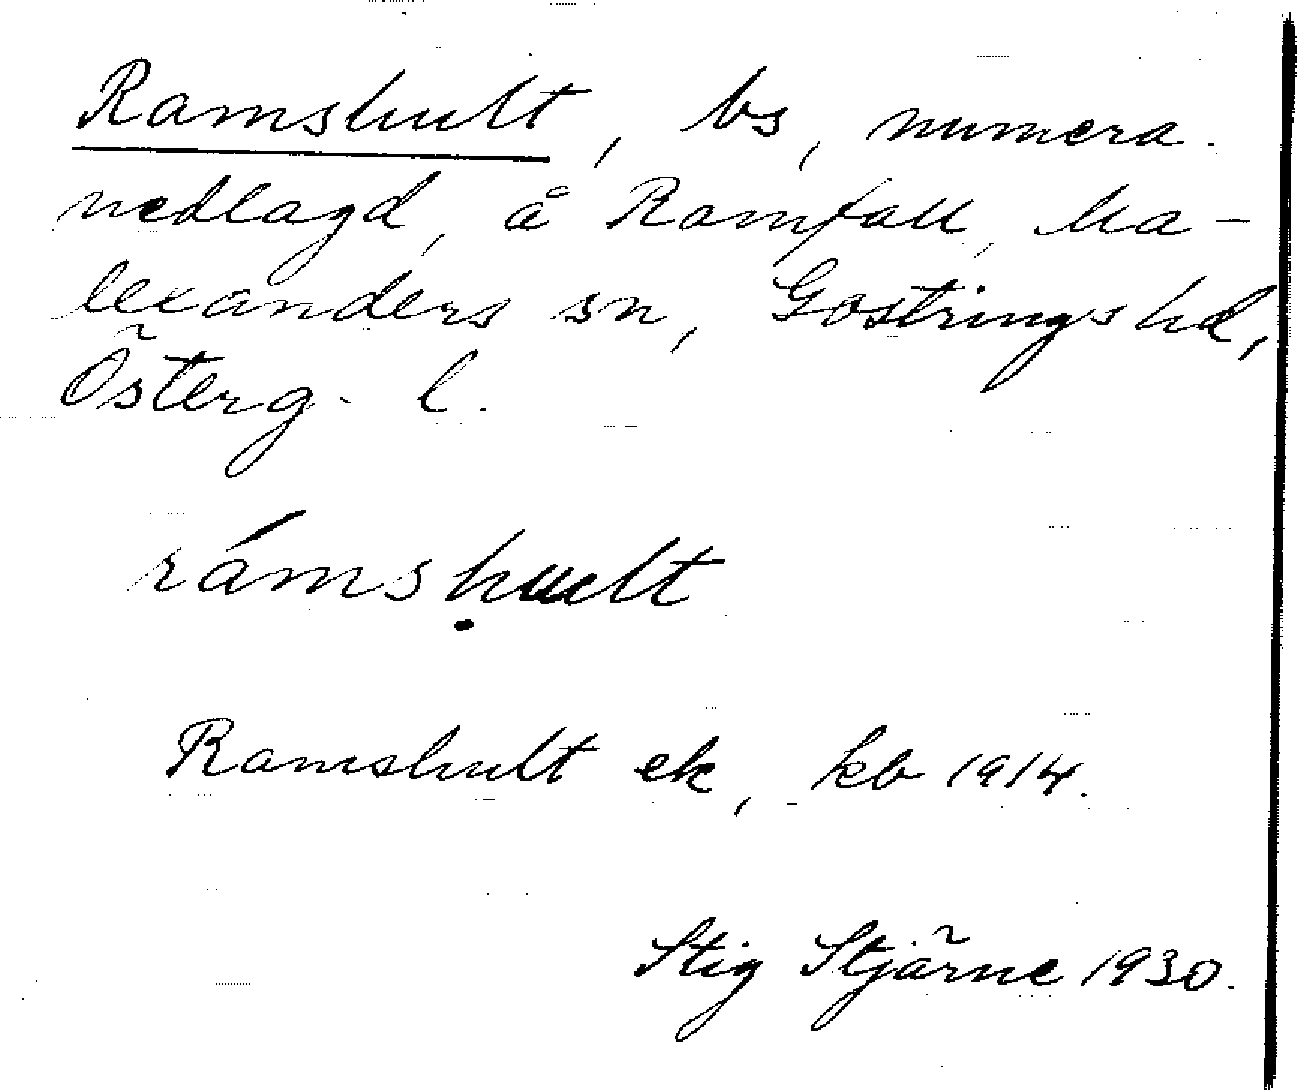 Ramshult, bs, numera
nedlagd, å Ramfall, Ma-
lexanders sn, Göstrings hd,
Österg. l.
rámshult
Ramshult ek, kb 1914.
Stig Stjärne 1930.